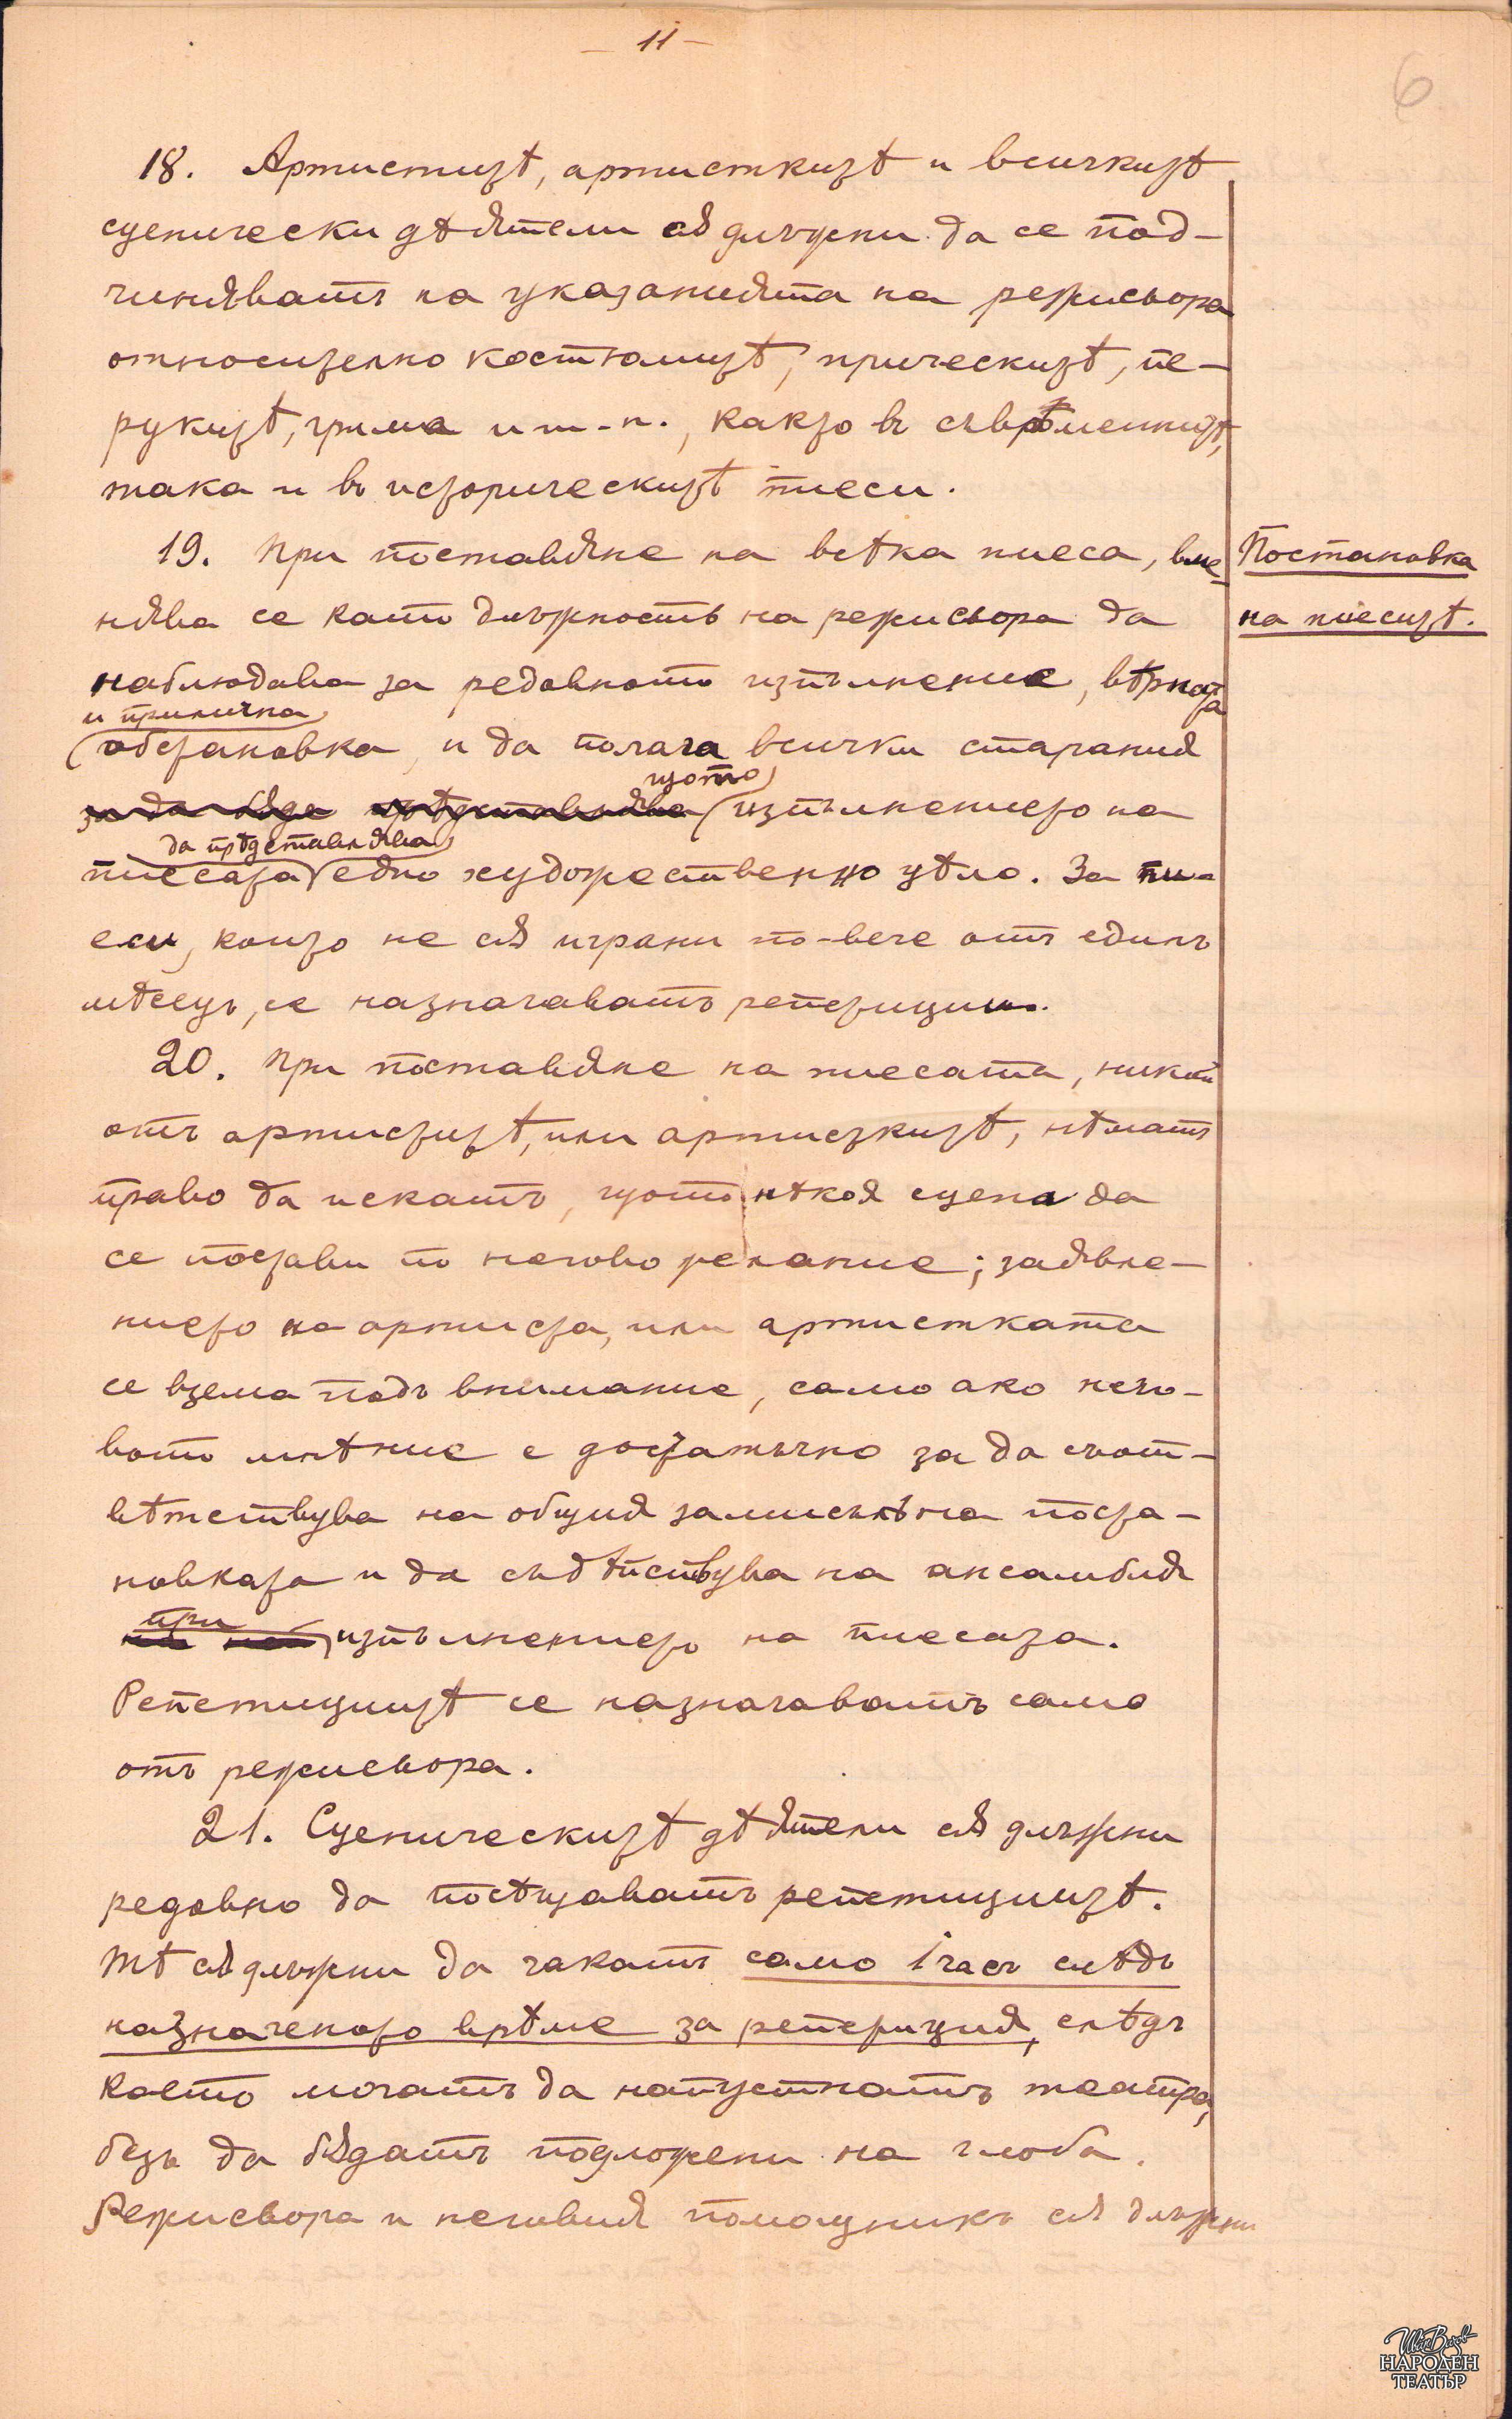 — 11 —
6
18. Артиститѣ, артисткитѣ и всичкитѣ
сценически дѣятели сѫ длъжни да се под-
чиняватъ на указанията на режисьора
относително костюмитѣ, прическитѣ, пе-
рукитѣ, грима и т. н., както въ съврѣменнитѣ,
така и въ историческитѣ пиеси.
19. При поставяне на всѣка пиеса, вме-
Постановка
нява се като длъжность на режисьора да
на пиеситѣ.
наблюдава за редовното изпълнение, вѣрната
и прилична
обстановка, и да полага всички старания
щото
за да бѫде прѣдставлява изпълнението на
да прѣдставлява
пиесата едно художественно цѣло. За пи-
еси, които не сѫ играни по-вече отъ единъ
мѣсецъ, се назначаватъ репетиции.
20. При поставяне на пиесата, никой
отъ артиститѣ, или артисткитѣ, нѣматъ
право да искатъ, щото нѣкоя сцена да
се постави по негово желание; заявле-
нието на артиста, или артистката
се взема подъ внимание, само ако него-
вото мнѣние е достатъчно за да съот-
вѣтствува на общия замисълъ на поста-
новката и да съдѣйствува на ансамбля
при
изпълнението на пиесата.
Репетициитѣ се назначаватъ само
отъ режисьора.
21. Сценическитѣ дѣятели сѫ длъжни
редовно да посѣщаватъ репетициитѣ.
Тѣ сѫ длъжни да чакатъ само 1 часъ слѣдъ
назначеното врѣме за репетиция, слѣдъ
което могатъ да напуснатъ театра,
безъ да бѫдатъ подложени на глоба.
Режисьора и неговия помощникъ сѫ длъжни
Ив. Вазов
НАРОДЕН
ТЕАТЪР